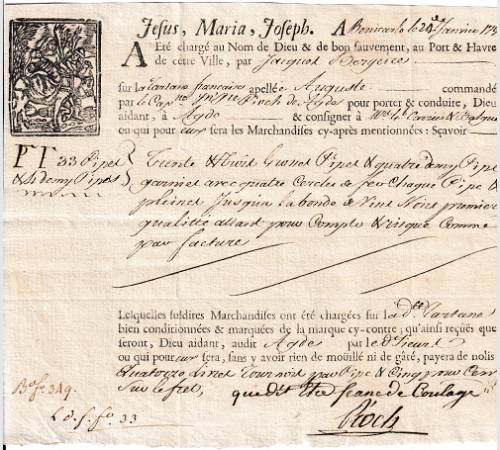 Jesus, Maria, Joseph. A Benicarlo le 24 Janvier 173
A Eté chargé au Nom de Dieu & de bon sauvement, au Port & Havre
de cette Ville, par Jacques
sur la Tartane françoise apellée Auguste commandé
par le Capne Pioch de Agde pour porter & conduire, Dieu
aidant, à Agde & consigner à Mrs
ou qui pour eux sera les Marchandises cy-après mentionnées : Sçavoir
PT 33 Pipes
& 4 demy Pipes
Trente & trois bonnes Pipes & quatre demy Pipe
garnies avec quatre Cercles de feu Chaque Pipe
pleines Jusqua la bonde de Vint Noir premier
qualitte allant pour Compte & risque Comme
par facture
Lesquelles susdites Marchandises ont été chargées sur lad.te Tartane
bien conditionnées & marquées de la marque cy-contre ; qu'ainsi reçûës que
seront, Dieu aidant, audit Agde par led. Sieurs
ou qui pour eux sera, sans y avoir rien de moüillé ni de gâté, payera de nolis
Quatorze Livres Tournois par Pipe & Cinq pour Cen
Sur le fret, que dit Etre franc de Coulage
Pioch
Bof. 349.
33